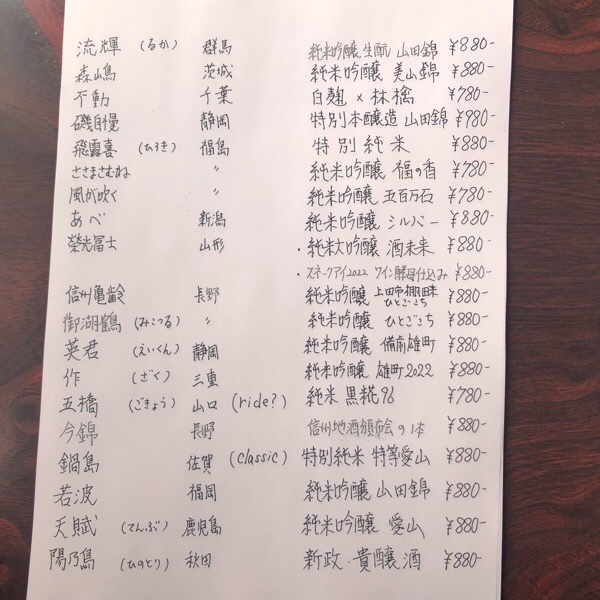 流輝 (るか) 群馬 純米吟醸 生酛 山田錦 ¥880-
森嶋 茨城 純米吟醸 美山錦 ¥880-
不動 千葉 白麹×林檎 ¥780-
磯自慢 静岡 特別本醸造 山田錦 ¥980-
飛露喜 (ひろき) 福島 特別純米 ¥880-
ささまさむね 〃 純米吟醸 福の香 ¥780-
風が吹く 〃 純米吟醸 五百万石 ¥780-
あべ 新潟 純米吟醸 シルバー ¥880-
榮光冨士 山形 ・純米大吟醸 酒未来 ¥880-
・スネークアイ2022 ワイン酵母仕込み ¥880-
信州亀齢 長野 純米吟醸 上田市棚田米ひとごこち ¥880-
御湖鶴 (みこつる) 〃 純米吟醸 ひとごこち ¥880-
英君 (えいくん) 静岡 純米吟醸 備前雄町 ¥880-
作 (ざく) 三重 純米吟醸 雄町2022 ¥880-
五橋 (ごきょう) 山口 (ride?) 純米 黒糀96 ¥780-
今錦 長野 信州地酒頒布会の1本 ¥880-
鍋島 佐賀 (classic) 特別純米 特等愛山 ¥880-
若波 福岡 純米吟醸 山田錦 ¥880-
天賦 (てんぶ) 鹿児島 純米吟醸 愛山 ¥880-
陽乃鳥 (ひのとり) 秋田 新政・貴醸酒 ¥880-